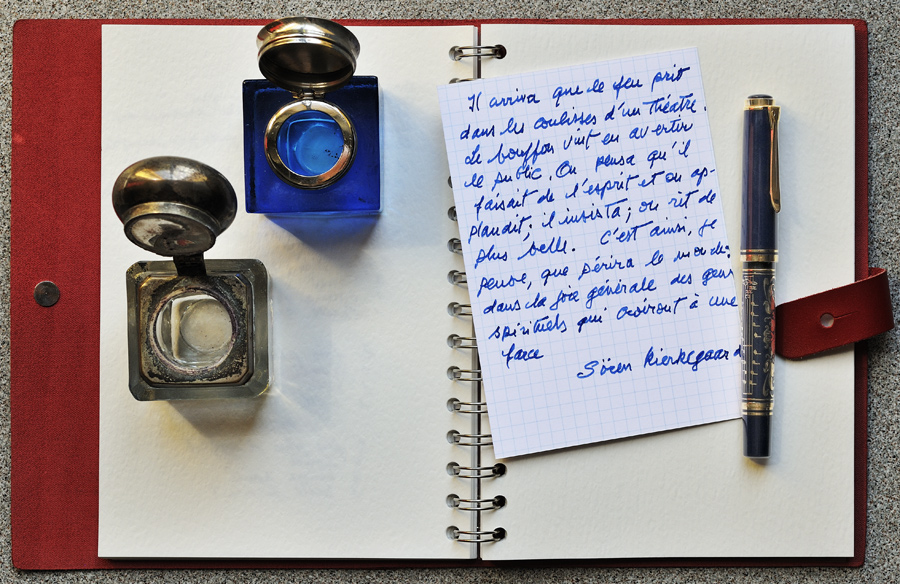 Il arriva que le feu prit
dans les coulisses d'un théâtre.
Le bouffon vint en avertir
le public. On pensa qu'il
faisait de l'esprit et on ap-
plaudit; il insista; on rit de
plus belle. C'est ainsi, je
pense, que périra le monde:
dans la joie générale des gens
spirituels qui croiront à une
farce
Sören Kierkegaard